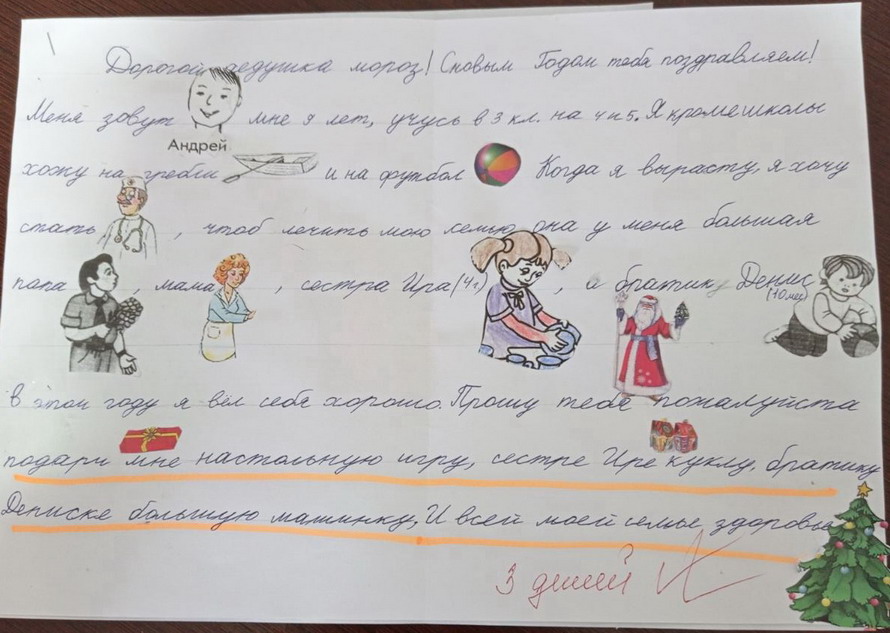 Дорогой дедушка мороз! Сновым Годом тебя поздравляем!
Меня зовут мне 9 лет, учусь в 3 кл. на 4 и 5. Я кроме школы
Андрей
хожу на гребли и на футбол Когда я вырасту, я хочу
стать , чтоб лечить мою семью она у меня большая
папа , мама , сестра Ира (4г) , и братик Денис
(10 мес)
В этом году я вел себя хорошо. Прошу тебя пожалуйста
подари мне настольную игру, сестре Ире куклу, братику
Дениске большую машинку, И всей моей семье здоровье
3 детей